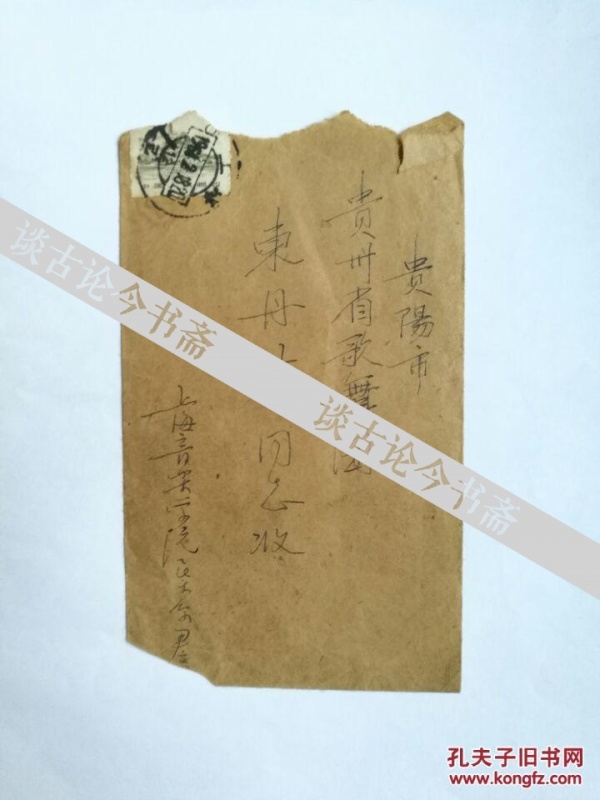 貴陽市
貴州省歌舞團
東丹 同志收
上海音樂学院
谈古论今书斋
谈古论今书斋
孔夫子旧书网
www.kongfz.com